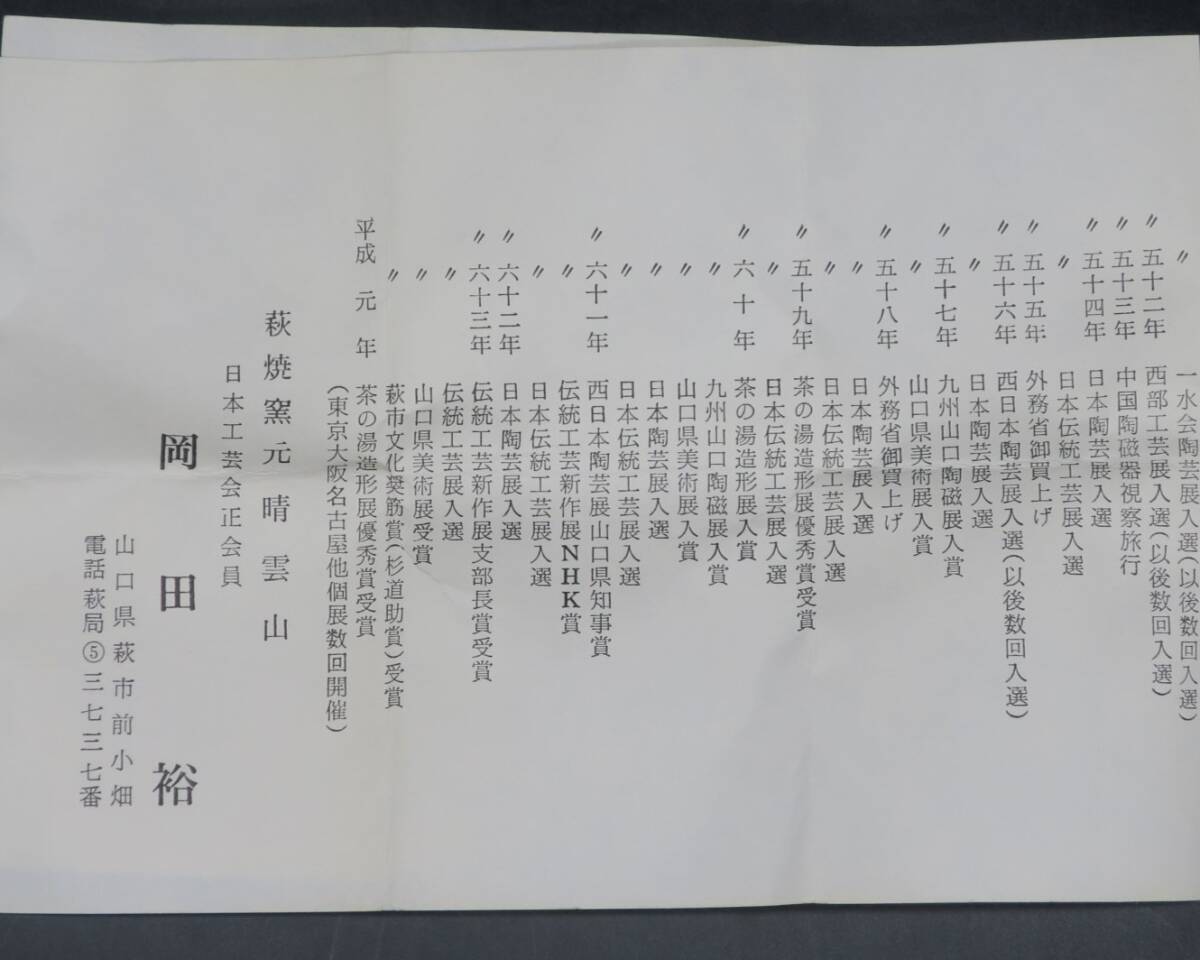 〃 一水会陶芸展入選(以後数回入選)
〃 五十二年 西部工芸展入選(以後数回入選)
〃 五十三年 中国陶磁器視察旅行
〃 五十四年 日本陶芸展入選
〃 日本伝統工芸展入選
〃 五十五年 外務省御買上げ
〃 五十六年 西日本陶芸展入選(以後数回入選)
〃 日本陶芸展入選
〃 五十七年 九州山口陶磁展入賞
〃 山口県美術展入賞
〃 五十八年 外務省御買上げ
〃 日本陶芸展入選
〃 日本伝統工芸展入選
〃 五十九年 茶の湯造形展優秀賞受賞
〃 日本伝統工芸展入選
〃 六十年 茶の湯造形展入賞
〃 九州山口陶磁展入賞
〃 山口県美術展入賞
〃 日本陶芸展入選
〃 日本伝統工芸展入選
〃 六十一年 西日本陶芸展山口県知事賞
〃 伝統工芸新作展NHK賞
〃 日本伝統工芸展入選
〃 六十二年 日本陶芸展入選
〃 六十三年 伝統工芸新作展支部長賞受賞
〃 伝統工芸展入選
〃 山口県美術展受賞
〃 萩市文化奨筋賞(杉道助賞)受賞
平成元年 茶の湯造形展優秀賞受賞
(東京大阪名古屋他個展数回開催)
萩焼窯元晴雲山
日本工芸会正会員
岡田裕
山口県萩市前小畑
電話萩局⑤三七三七番